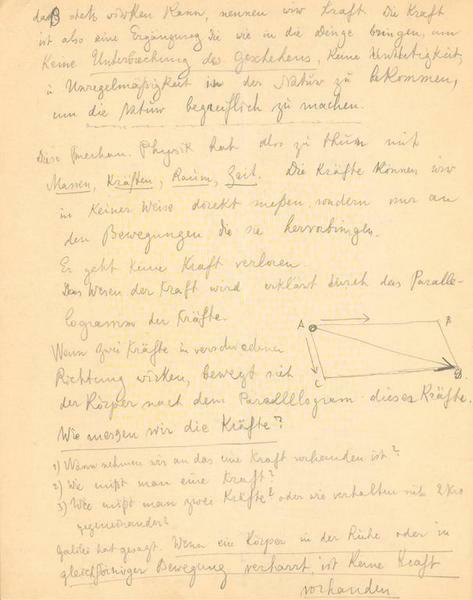 daß stets wirken kann, nennen wir Kraft. Die Kraft
ist also eine Ergänzung die wir in die Dinge bringen, um
keine Unterbrechung des Geschehens, keine Unstetigkeit,
u Unregelmäßigkeit in der Natur zu bekommen,
um die Natur begreiflich zu machen.
Diese mechan. Physik hat also zu thun mit
Massen, Kräften, Raum, Zeit. Die Kräfte können wir
in keiner Weise direkt meßen, sondern nur an
den Bewegungen die sie hervorbringen.
Es geht keine Kraft verloren.
Das Wesen der Kraft wird erklärt durch das Paralle-
logramm der Kräfte.
A B
C D
Wenn zwei Kräfte in verschiedener
Richtung wirken, bewegt sich
der Körper nach dem Parallelogram dieser Kräfte.
Wie messen wir die Kräfte?
1) Wann nehmen wir an das eine Kraft vorhanden ist?
2) Wie mißt man eine Kraft?
3) Wie mißt man zwei Kräfte? oder wie verhalten sich 2 Krä
gegeneinander?
Galilei hat gesagt. Wenn ein Körper in der Ruhe oder in
gleichförmiger Bewegung verharrt, ist keine Kraft
vorhanden